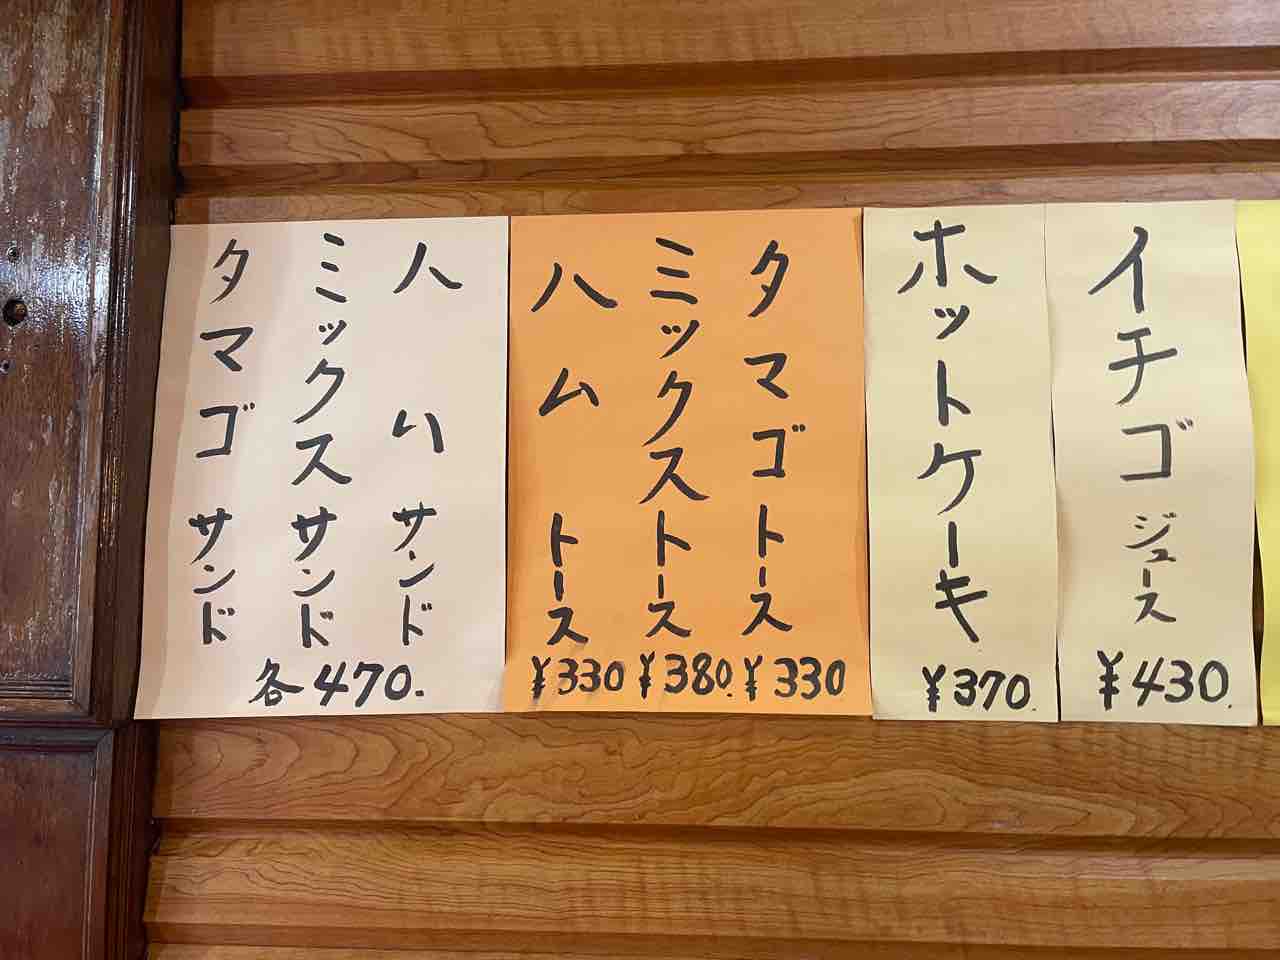 イチゴジュース
¥430.
ホットケーキ
¥370.
タマゴトース
¥330
ミックストース
¥380.
ハムトース
¥330
ハムサンド
ミックスサンド
タマゴサンド
各470.